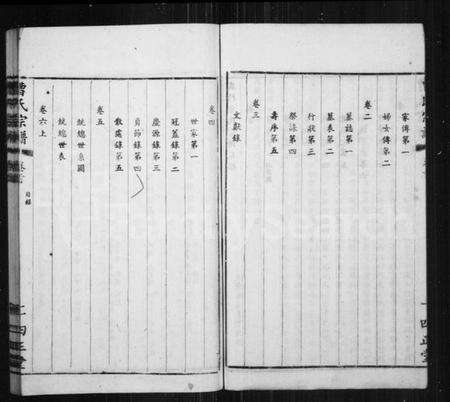 家傳第一
婦女傳第二
卷二
墓誌第一
墓表第二
行狀第三
祭法第四
壽序第五
卷三
文獻錄
卷四
世家第一
冠蓋錄第二
慶源錄第三
貞節錄第四
散處錄第五
卷五
統總世系圖
統總世表
卷六上
曾氏宗譜
目錄
FamilySearch